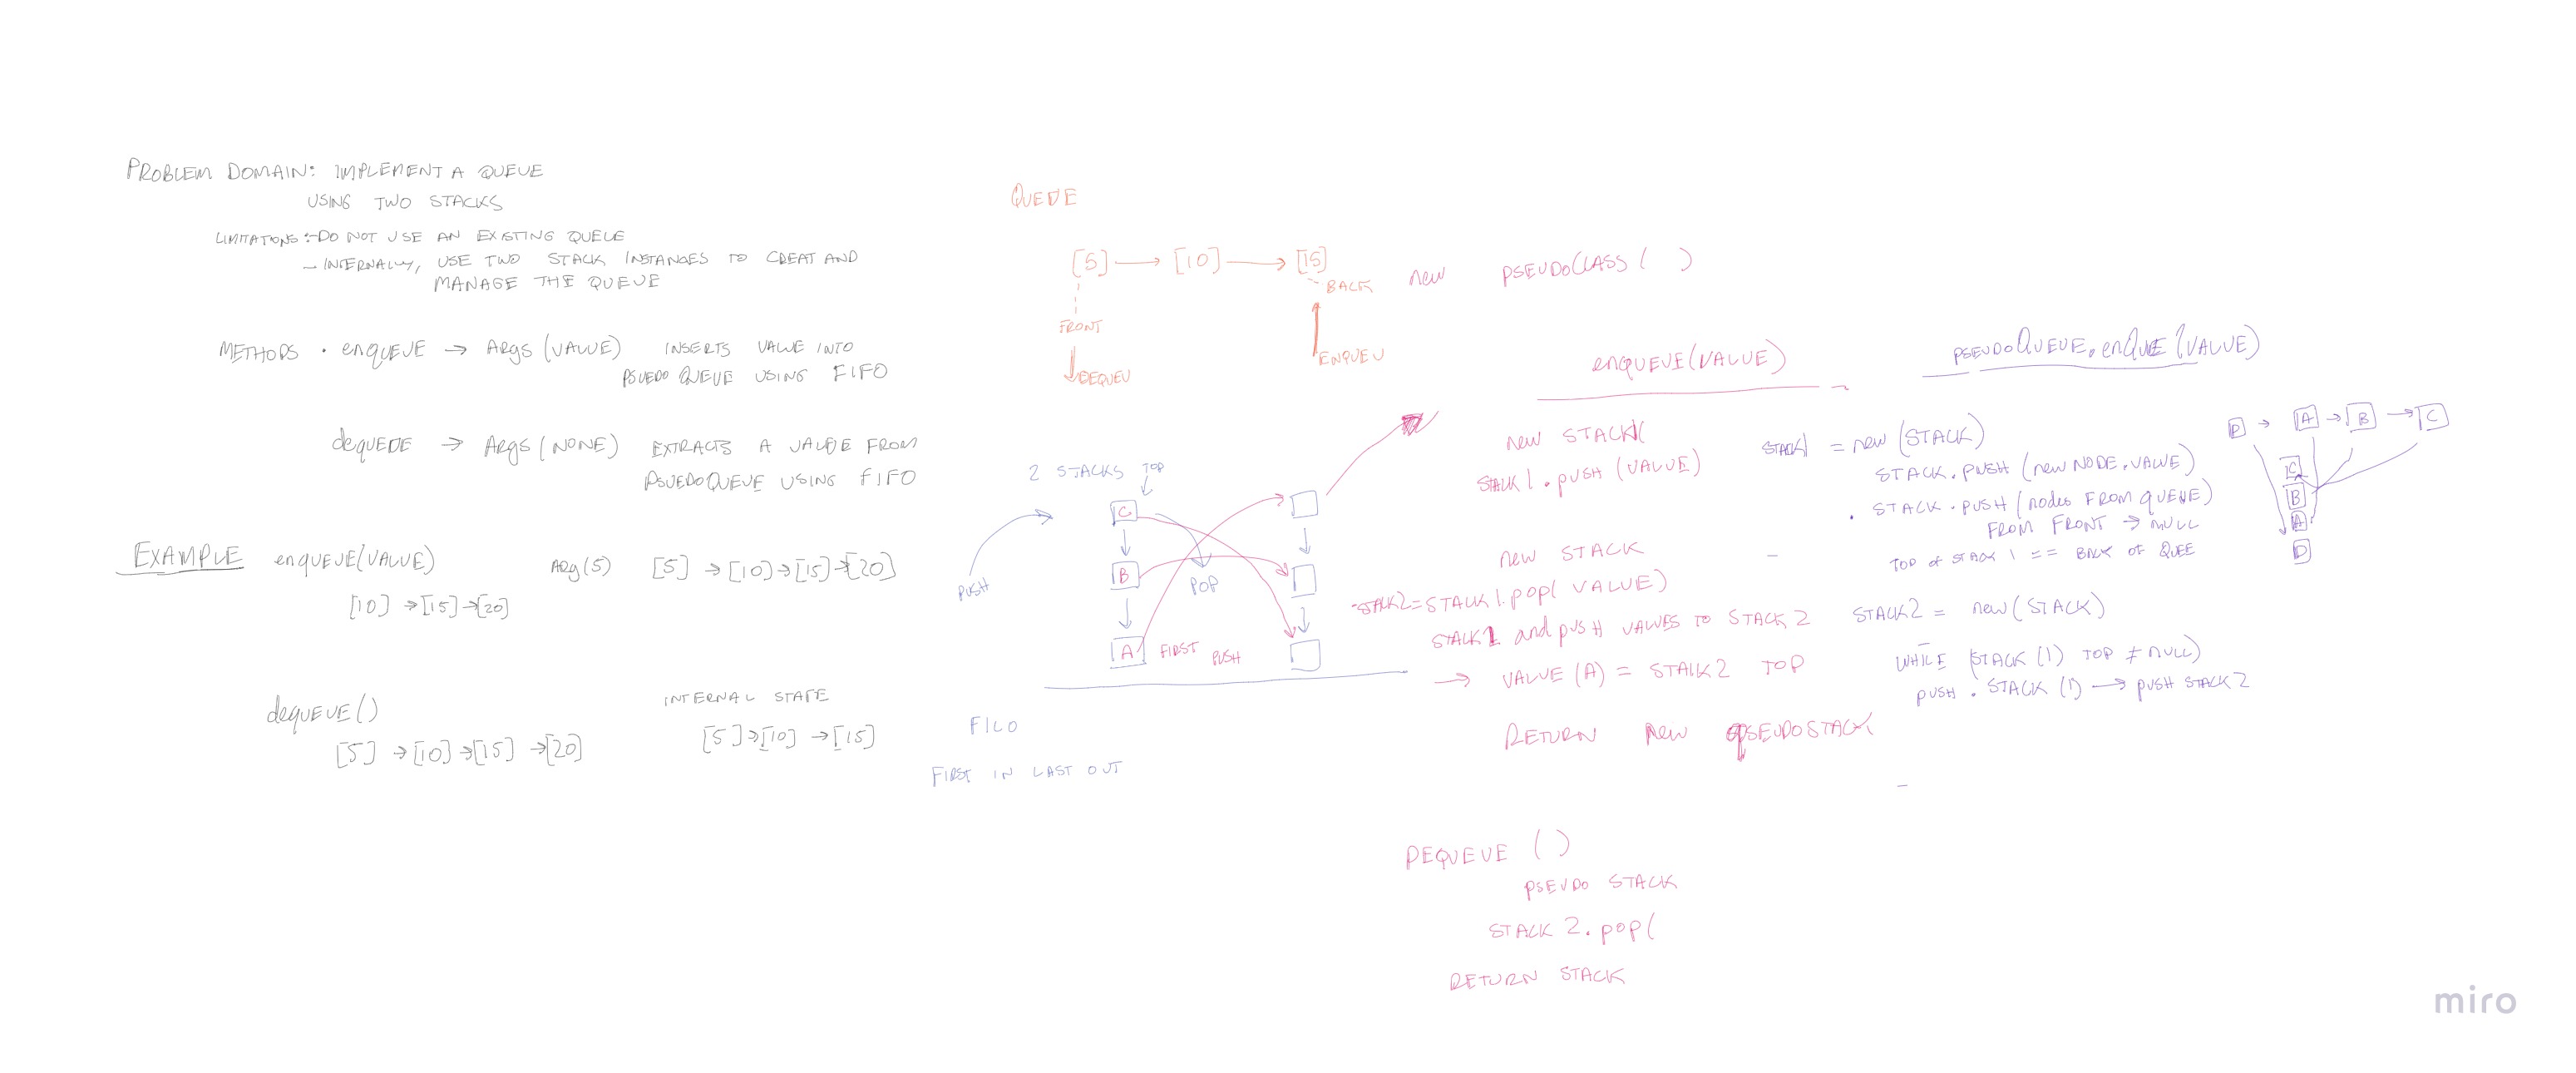 PROBLEM DOMAIN: IMPLEMENT A QUEUE
USING TWO STACKS
LIMITATIONS:-DO NOT USE AN EXISTING QUEUE
- INTERNALLY, USE TWO STACK INSTANCES TO CREAT AND
MANAGE THE QUEUE
METHODS • enQUEUE → Args (VALUE) INSERTS VALUE INTO
PSUEDO QUEUE USING FIFO
deQUEUE → Args (NONE) EXTRACTS A VALUE FROM
PSUEDOQUEUE USING FIFO
EXAMPLE enQUEUE(VALUE) Arg(5) [5] → [10] → [15] → [20]
[10] → [15] → [20]
deQUEUE() INTERNAL STATE
[5] → [10] → [15] → [20] [5] → [10] → [15]
QUEUE
[5] → [10] → [15]
FRONT BACK
DEQUEU ENQUEU
2 STACKS TOP
PUSH
C
B POP
A FIRST PUSH
FILO
FIRST IN LAST OUT
new PSEUDOCLASS ( )
enQUEUE(VALUE)
new STACK
STACK 1.PUSH (VALUE)
new STACK
STACK2=STACK 1.pop( VALUE)
STACK 1 and push VALUES TO STACK 2
→ VALUE (A) = STACK 2 TOP
RETURN new PSEUDOSTACK
DEQUEUE ( )
PSEUDO STACK
STACK 2.pop(
RETURN STACK
PSEUDOQUEUE.enQUE(VALUE)
STACK1 = new (STACK)
STACK.PUSH (new NODE.VALUE)
• STACK.PUSH (nodes FROM QUEUE)
FROM FRONT → NULL
TOP of STACK 1 == BACK OF QUEE
STACK2 = new (STACK)
WHILE (STACK (1) TOP ≠ NULL)
PUSH. STACK (1) → PUSH STACK 2
D → A → B → C
C
B
A
D
miro